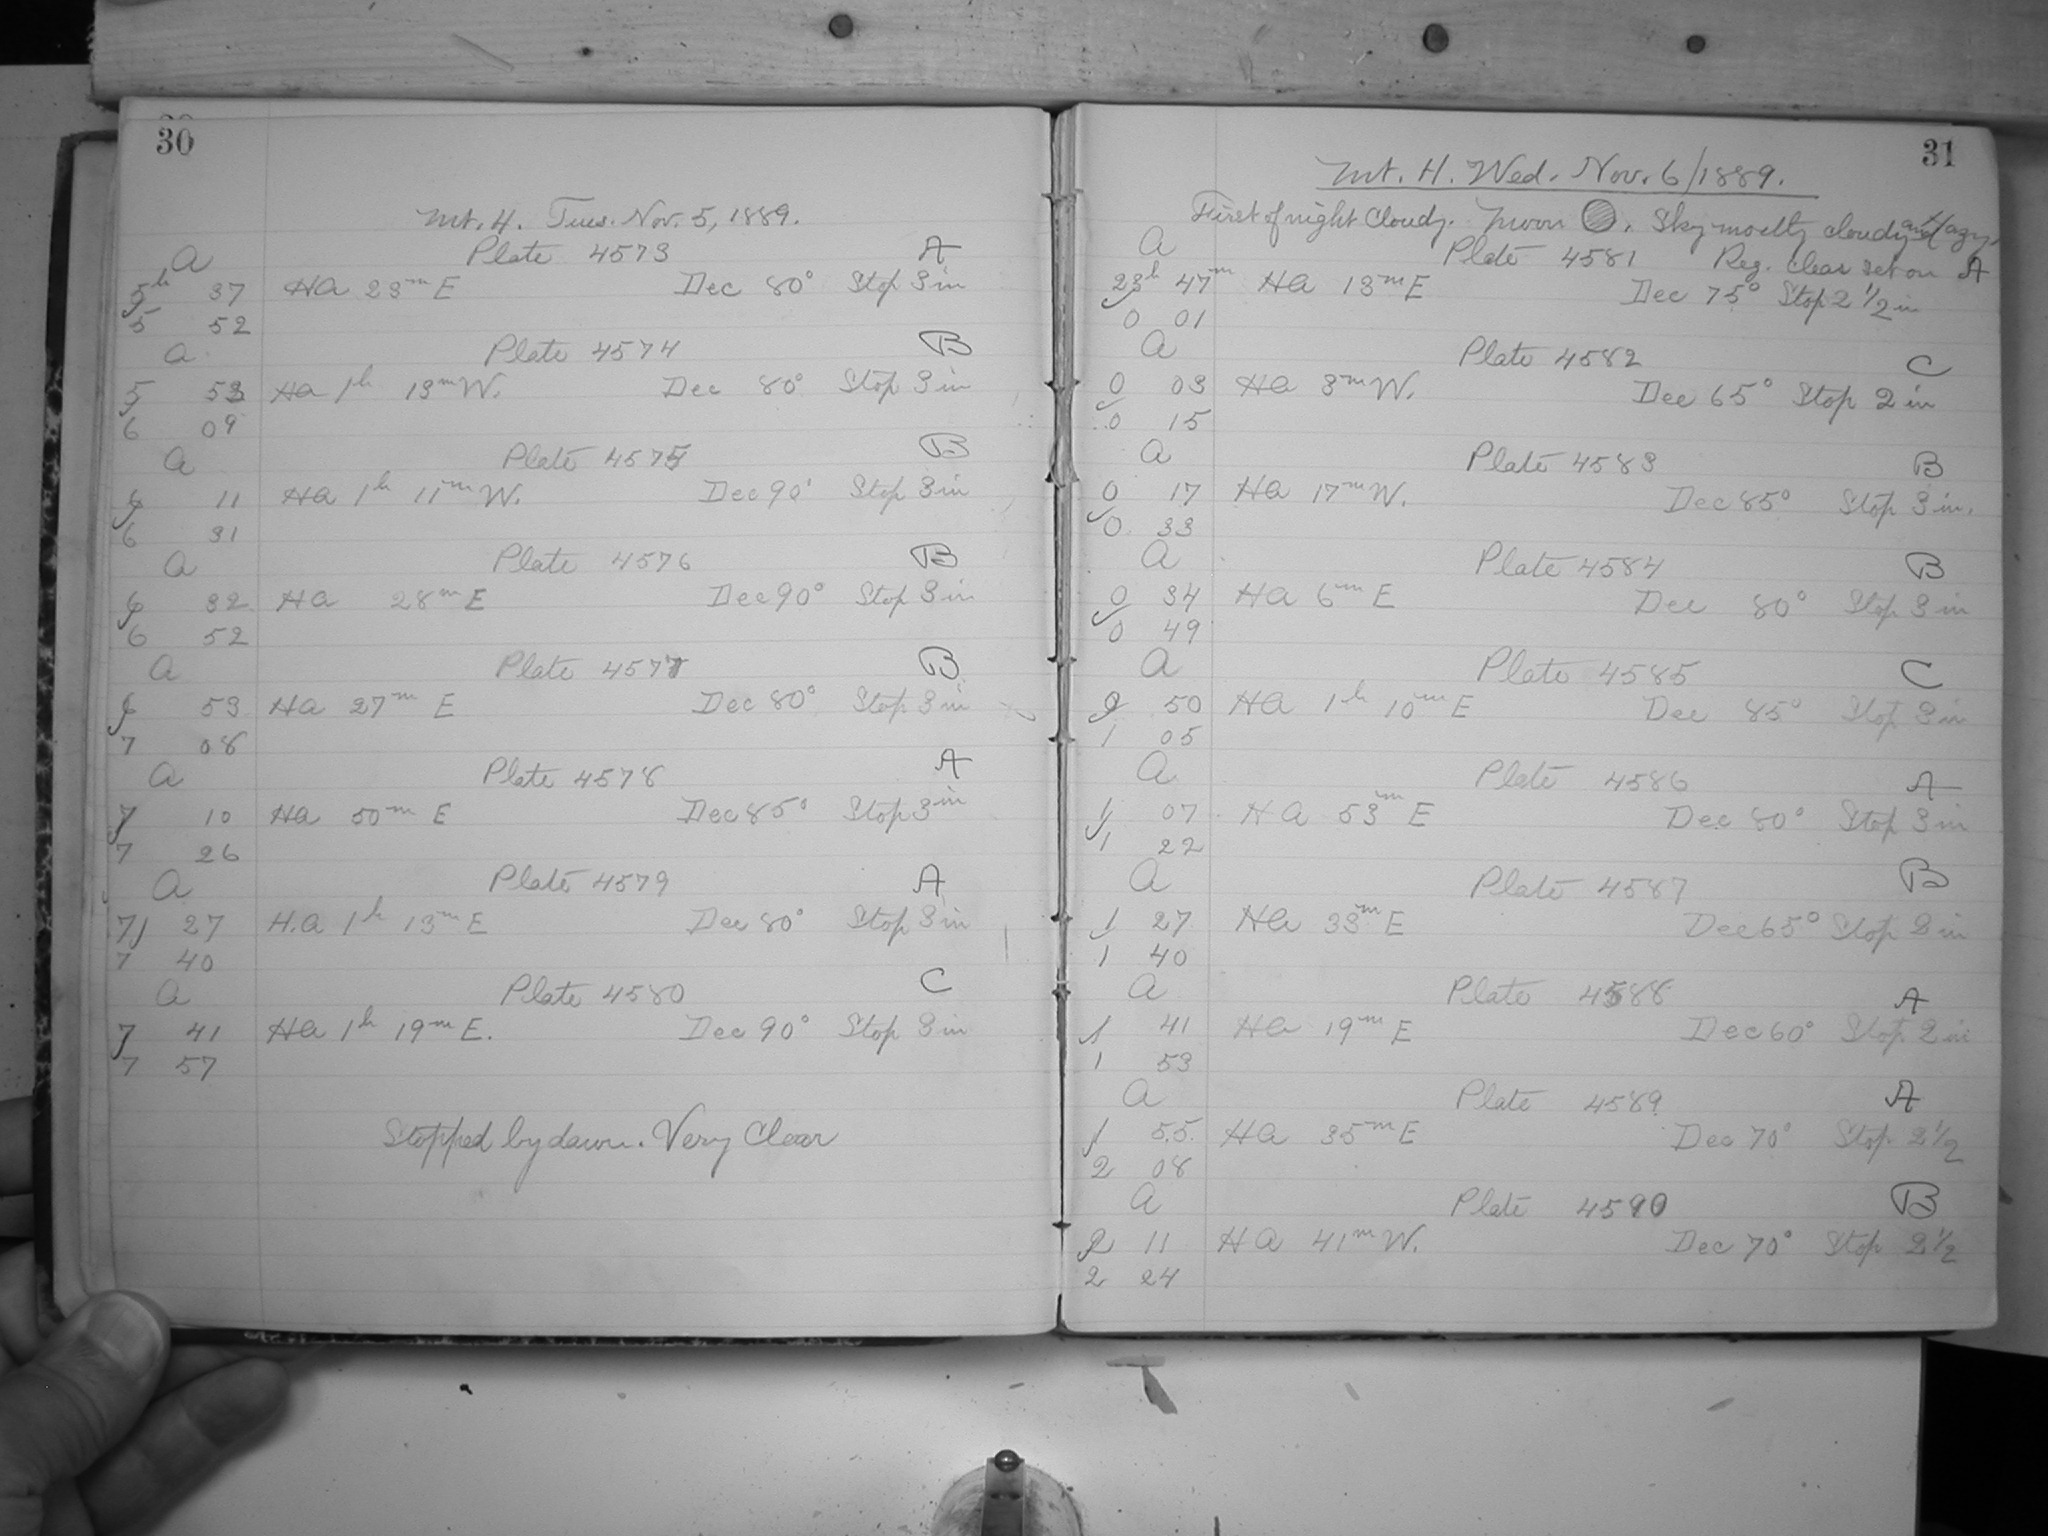 30
Mt. H. Tues. Nov. 5, 1889.
a Plate 4573 A
5h 37 HA 23m E Dec 80° Stop 3 in
5 52
a Plate 4574 B
5 53 HA 1h 13m W. Dec 80° Stop 3 in
6 09
a Plate 4575 B
6 11 HA 1h 11m W. Dec 90° Stop 3 in
6 31
a Plate 4576 B
6 32 HA 28m E Dec 90° Stop 3 in
6 52
a Plate 4577 B
6 53 HA 27m E Dec 80° Stop 3 in
7 08
a Plate 4578 A
7 10 HA 50m E Dec 85° Stop 3 in
7 26
a Plate 4579 A
7 27 H.A 1h 13m E Dec 80° Stop 3 in
7 40
a Plate 4580 C
7 41 HA 1h 19m E. Dec 90° Stop 3 in
7 57
Stopped by dawn. Very Clear
31
Mt. H. Wed. Nov. 6/1889.
First of night Cloudy. Moon . Sky mostly cloudy and hazy.
a Plate 4581 Reg. clear set on A
23h 47m HA 13m E Dec 75° Stop 2 1/2 in
0 01
a Plate 4582 C
0 03 HA 3m W. Dec 65° Stop 2 in
0 15
a Plate 4583 B
0 17 HA 17m W. Dec 85° Stop 3 in.
0 33
a Plate 4584 B
0 34 HA 6m E Dec 80° Stop 3 in
0 49
a Plate 4585 C
0 50 HA 1h 10m E Dec 85° Stop 3 in
1 05
a Plate 4586 A
1 07 HA 53m E Dec 80° Stop 3 in
1 22
a Plate 4587 B
1 27 HA 33m E Dec 65° Stop 2 in
1 40
a Plate 4588 A
1 41 HA 19m E Dec 60° Stop 2 in
1 53
a Plate 4589 A
1 55 HA 35m E Dec 70° Stop 2 1/2
2 08
a Plate 4590 B
2 11 HA 41m W. Dec 70° Stop 2 1/2
2 24